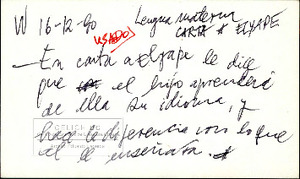 W 16-12-90 Lengua materna
USADO CARTA A ELYAPE
— En carta a Elyape le dice
que el hijo aprenderá
de ella su idioma, y
hace la diferencia con lo que
al él enseñara.